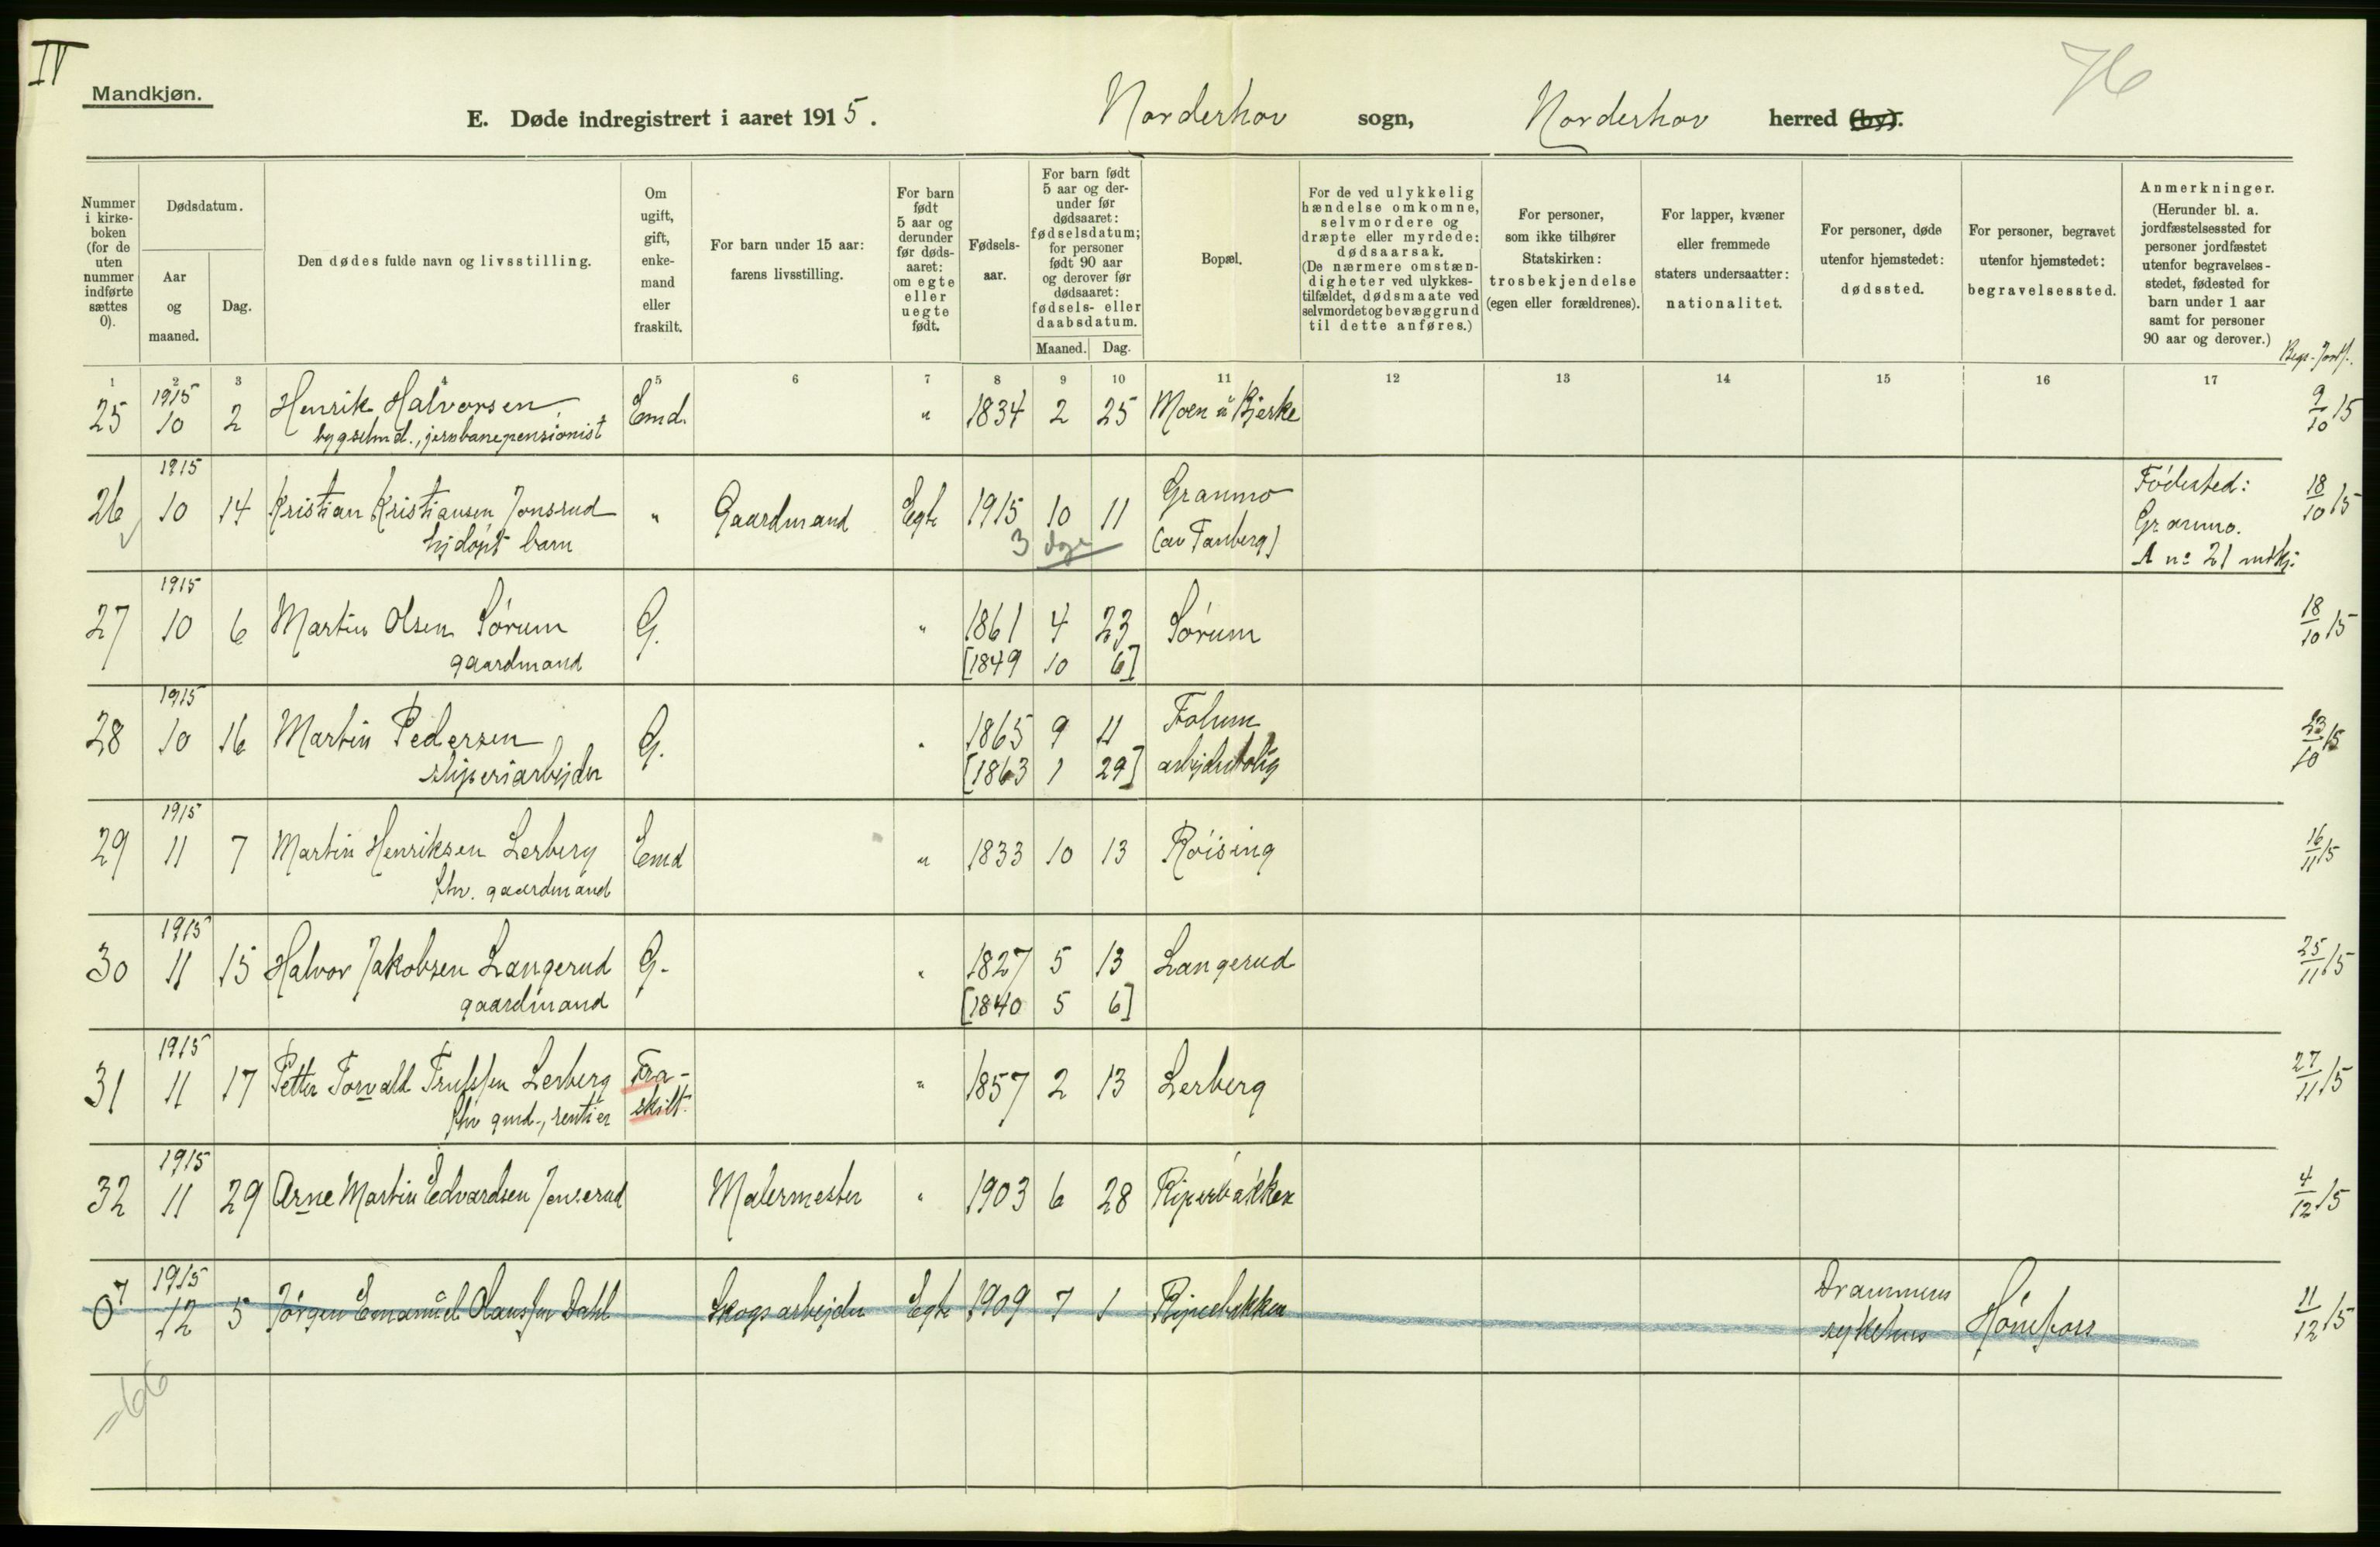 IV
76
Mandkjøn.
E. Døde indregistrert i aaret 1915. Norderhov sogn, Norderhov herred (by).
Nummer i kirkeboken (for de uten nummer indførte sættes 0).
Dødsdatum.
Aar og maaned.
Dag.
Den dødes fulde navn og livsstilling.
Om ugift, gift, enkemand eller fraskilt.
For barn under 15 aar: farens livsstilling.
For barn født 5 aar og derunder før dødsaaret: om egte eller uegte født.
Fødselsaar.
For barn født 5 aar og derunder før dødsaaret: fødselsdatum; for personer født 90 aar og derover før dødsaaret: fødsels- eller daabsdatum.
Maaned. Dag.
Bopæl.
For de ved ulykkelig hændelse omkomne, selvmordere og dræpte eller myrdede: dødsaarsak. (De nærmere omstændigheter ved ulykkestilfældet, dødsmaate ved selvmordet og bevæggrund til dette anføres.)
For personer, som ikke tilhører Statskirken: trosbekjendelse (egen eller forældrenes).
For lapper, kvæner eller fremmede staters undersaatter: nationalitet.
For personer, døde utenfor hjemstedet: dødssted.
For personer, begravet utenfor hjemstedet: begravelsessted.
Anmerkninger. (Herunder bl. a. jordfæstelsessted for personer jordfæstet utenfor begravelsesstedet, fødested for barn under 1 aar samt for personer 90 aar og derover.)
Begr. Jordf.
1 2 3 4 5 6 7 8 9 10 11 12 13 14 15 16 17
1915
25 10 2 Henrik Halvorsen Emd. " 1834 2 25 Moen u Bjerke 9/10 15
bygselmd., jernbanepensionist
1915
26 10 14 Kristian Kristiansen Jonsrud " Gaardmand Egte 1915 10 11 Granmo Fødested: 18/10 15
hjdøpt barn 3 dge (av Tanberg) Granmo.
A no 21 mdkj.
1915
27 10 6 Martin Olsen Sørum G. " 1861 4 23 Sørum 18/10 15
gaardmand [1849 10 6]
1915
28 10 16 Martin Pedersen G. " 1865 9 11 Folum 23/10 15
sliperiarbejder [1863 1 29] arbejderbolig
1915
29 11 7 Martin Henriksen Lerberg Emd " 1833 10 13 Røising 16/11 15
fhv. gaardmand
1915
30 11 15 Halvor Jakobsen Langerud G. " 1827 5 13 Langerud 25/11 15
gaardmand [1840 5 6]
1915
31 11 17 Petter Torvald Trulssen Lerberg Fra- " 1857 2 13 Lerberg 27/11 15
fhv gmd., rentier skilt.
1915
32 11 29 Arne Martin Edvardsen Jonserud Malermester " 1903 6 28 Riperbakken 4/12 15
7 1915
0 12 5 Jørgen Emanuel Claussen Dahl Skogsarbejder Egte 1909 7 1 Ripeebakken Drammens sykehus Hønefoss 11/12 15
=66